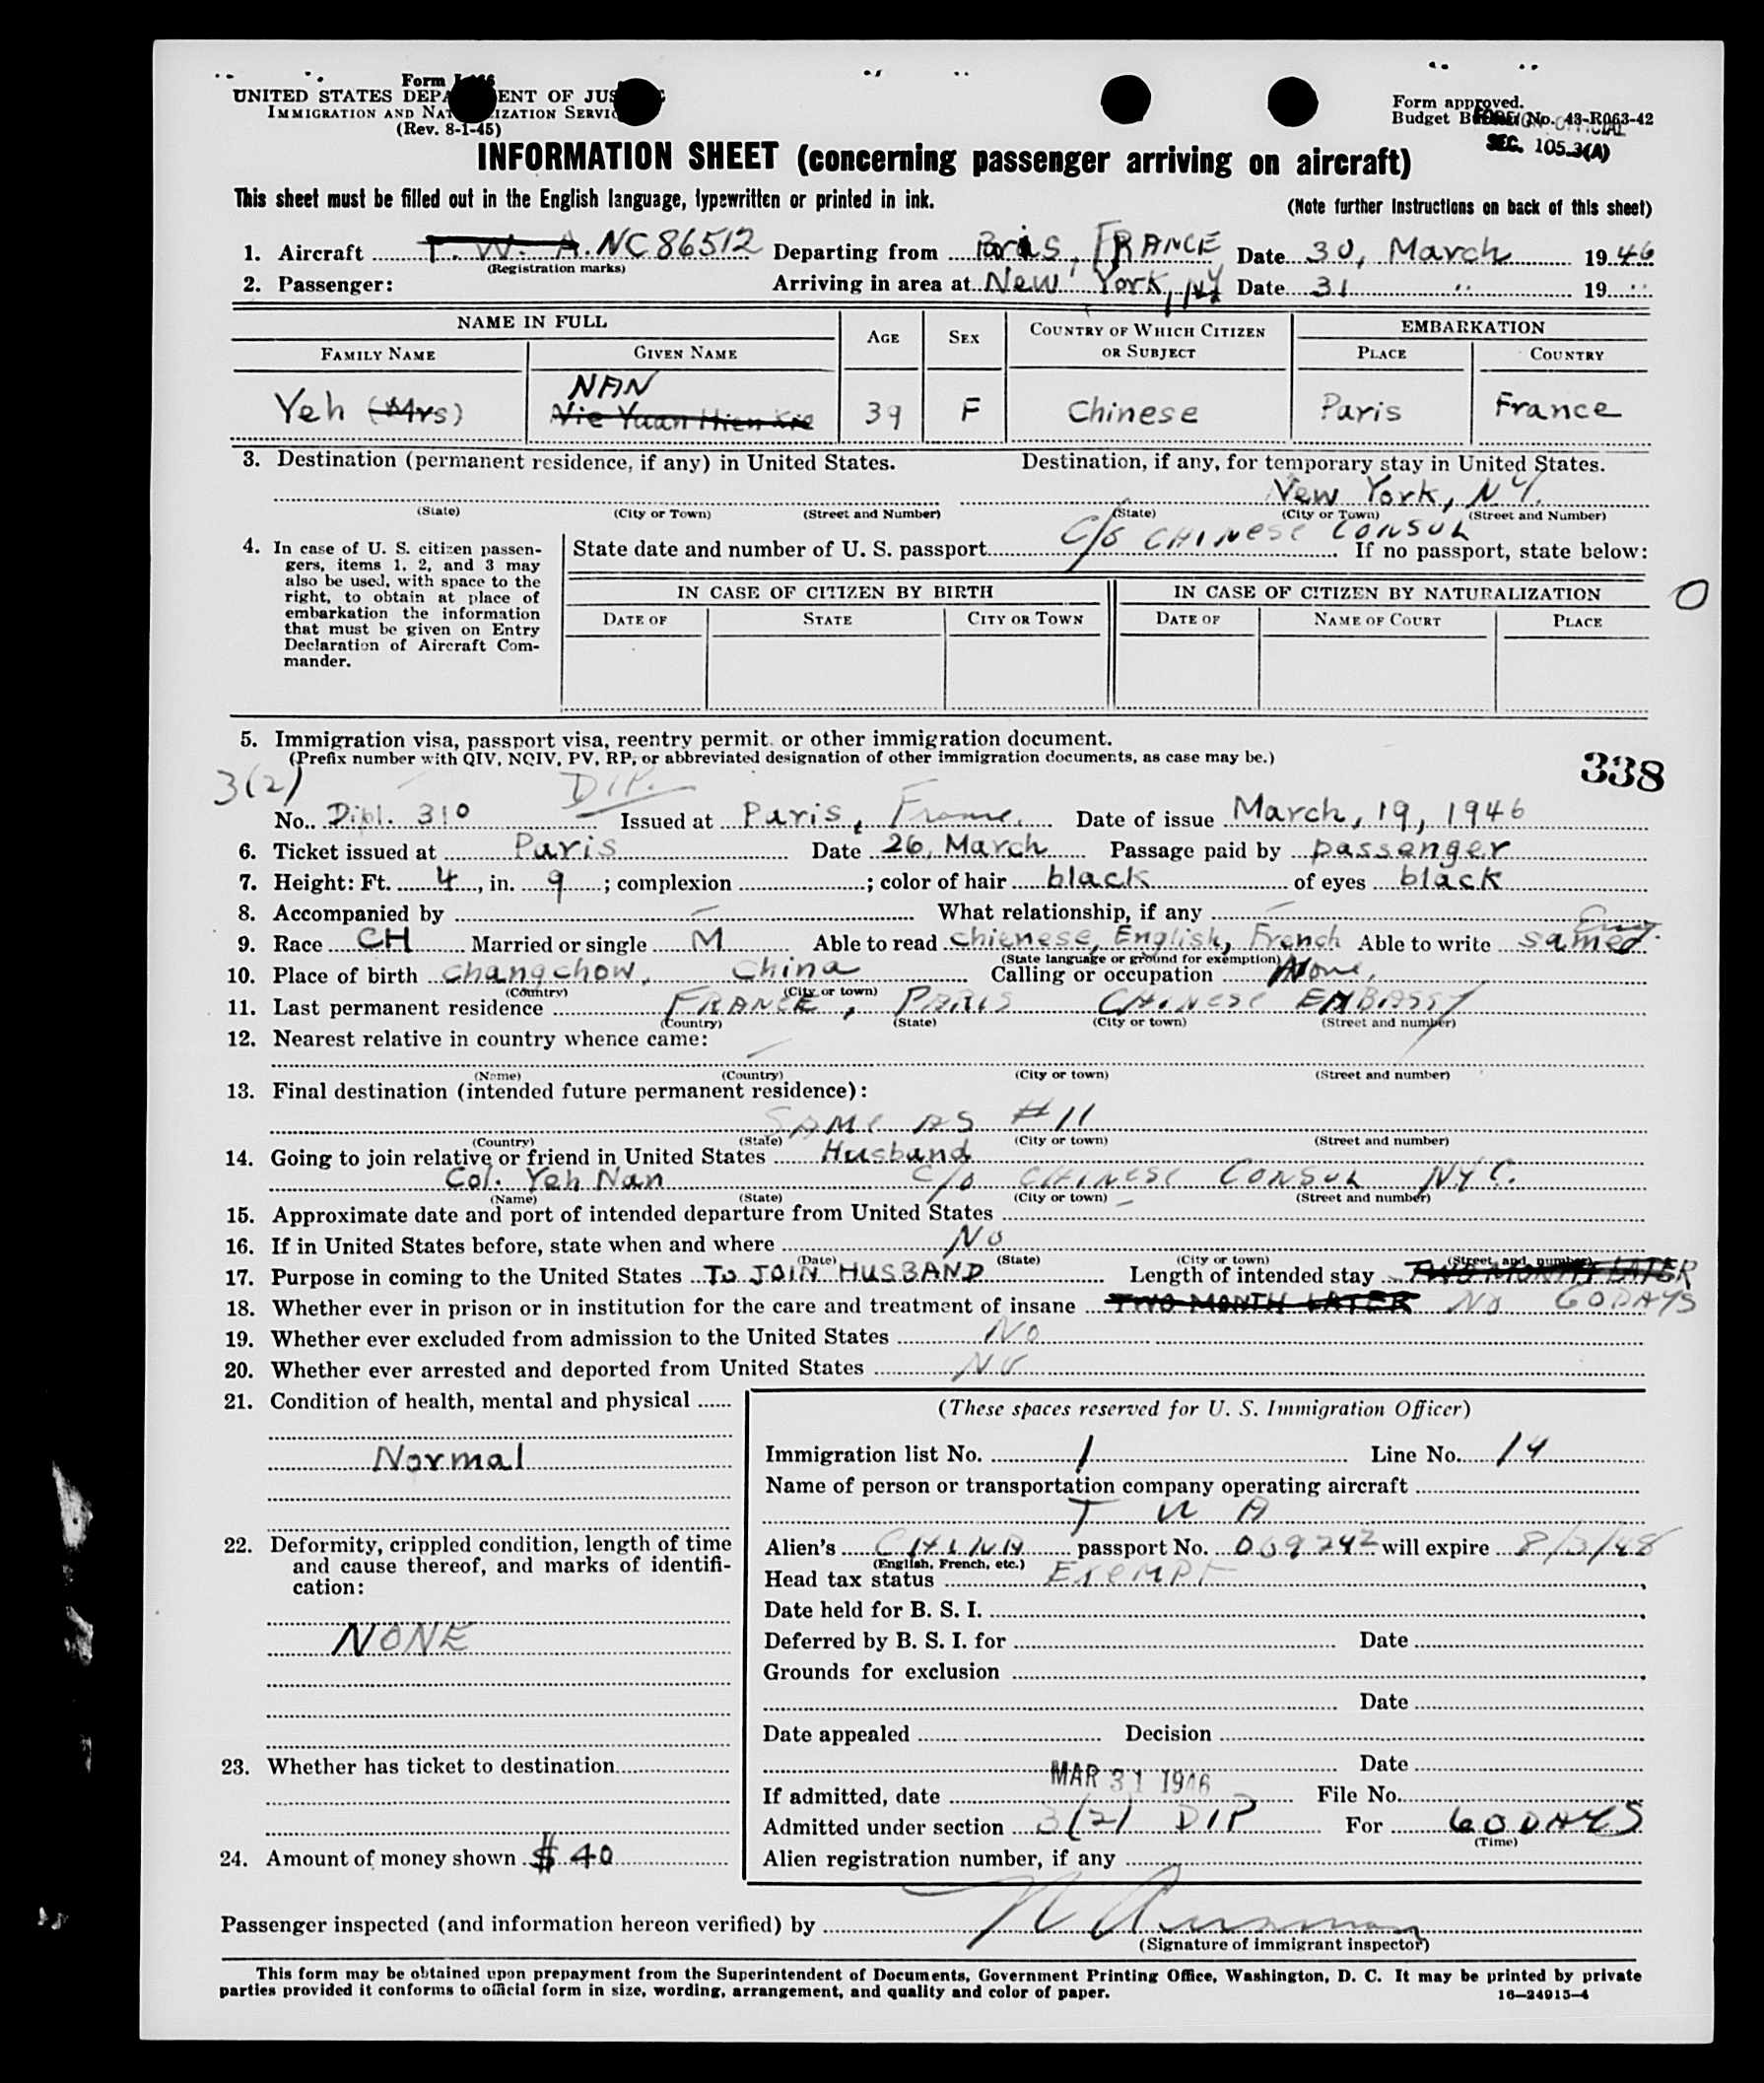 Form I-466
UNITED STATES DEPARTMENT OF JUSTICE
IMMIGRATION AND NATURALIZATION SERVICE
(Rev. 8-1-45)
Form approved.
Budget Bureau No. 43-R063-42
SEC. 105.3(A)
INFORMATION SHEET (concerning passenger arriving on aircraft)
This sheet must be filled out in the English language, typewritten or printed in ink.
(Note further instructions on back of this sheet)
1. Aircraft T. W. A. NC 86512 Departing from Paris, FRANCE Date 30, March 1946
(Registration marks)
2. Passenger: Arriving in area at New York, NY Date 31 " 19 "
NAME IN FULL AGE SEX COUNTRY OF WHICH CITIZEN OR SUBJECT EMBARKATION
FAMILY NAME GIVEN NAME PLACE COUNTRY
NAN
Yeh (Mrs) Nie Yuan Hien Kie 39 F Chinese Paris France
3. Destination (permanent residence, if any) in United States. Destination, if any, for temporary stay in United States.
New York, NY.
(State) (City or Town) (Street and Number) (State) (City or Town) (Street and Number)
C/o CHINESE CONSUL
4. In case of U. S. citizen passengers, items 1, 2, and 3 may also be used, with space to the right, to obtain at place of embarkation the information that must be given on Entry Declaration of Aircraft Commander.
State date and number of U. S. passport If no passport, state below:
IN CASE OF CITIZEN BY BIRTH IN CASE OF CITIZEN BY NATURALIZATION
DATE OF STATE CITY OR TOWN DATE OF NAME OF COURT PLACE
O
5. Immigration visa, passport visa, reentry permit, or other immigration document.
(Prefix number with QIV, NQIV, PV, RP, or abbreviated designation of other immigration documents, as case may be.)
338
3(2) DIP.
No. Dipl. 310 Issued at Paris, France. Date of issue March, 19, 1946
6. Ticket issued at Paris Date 26, March Passage paid by passenger
7. Height: Ft. 4, in. 9; complexion ; color of hair black of eyes black
8. Accompanied by — What relationship, if any —
Eng.
9. Race CH Married or single M Able to read chienese, English, French Able to write samed
(State language or ground for exemption)
10. Place of birth changchow, China Calling or occupation None.
(Country) (City or town)
11. Last permanent residence FRANCE, PARIS CHINESE EMBASSY
(Country) (State) (City or town) (Street and number)
12. Nearest relative in country whence came: —
(Name) (Country) (City or town) (Street and number)
13. Final destination (intended future permanent residence):
SAME AS #11
(Country) (State) (City or town) (Street and number)
14. Going to join relative or friend in United States Husband
Col. Yeh Nan c/o CHINESE CONSUL NYC.
(Name) (State) (City or town) (Street and number)
15. Approximate date and port of intended departure from United States —
16. If in United States before, state when and where No
(Date) (State) (City or town) (Street and number)
17. Purpose in coming to the United States To JOIN HUSBAND Length of intended stay TWO MONTH LATER
18. Whether ever in prison or in institution for the care and treatment of insane TWO MONTH LATER No 60 DAYS
19. Whether ever excluded from admission to the United States No
20. Whether ever arrested and deported from United States No
21. Condition of health, mental and physical
Normal
22. Deformity, crippled condition, length of time and cause thereof, and marks of identification:
NONE
23. Whether has ticket to destination
24. Amount of money shown $ 40
(These spaces reserved for U. S. Immigration Officer)
Immigration list No. 1 Line No. 14
Name of person or transportation company operating aircraft
T W A
Alien's CHINA passport No. 069242 will expire 8/3/48
(English, French, etc.)
Head tax status EXEMPT
Date held for B. S. I.
Deferred by B. S. I. for Date
Grounds for exclusion
Date
Date appealed Decision
Date
If admitted, date MAR 31 1946 File No.
Admitted under section 3(2) DIP For 60 DAYS
(Time)
Alien registration number, if any
Passenger inspected (and information hereon verified) by
(Signature of immigrant inspector)
This form may be obtained upon prepayment from the Superintendent of Documents, Government Printing Office, Washington, D. C. It may be printed by private
parties provided it conforms to official form in size, wording, arrangement, and quality and color of paper.
16—24915-4